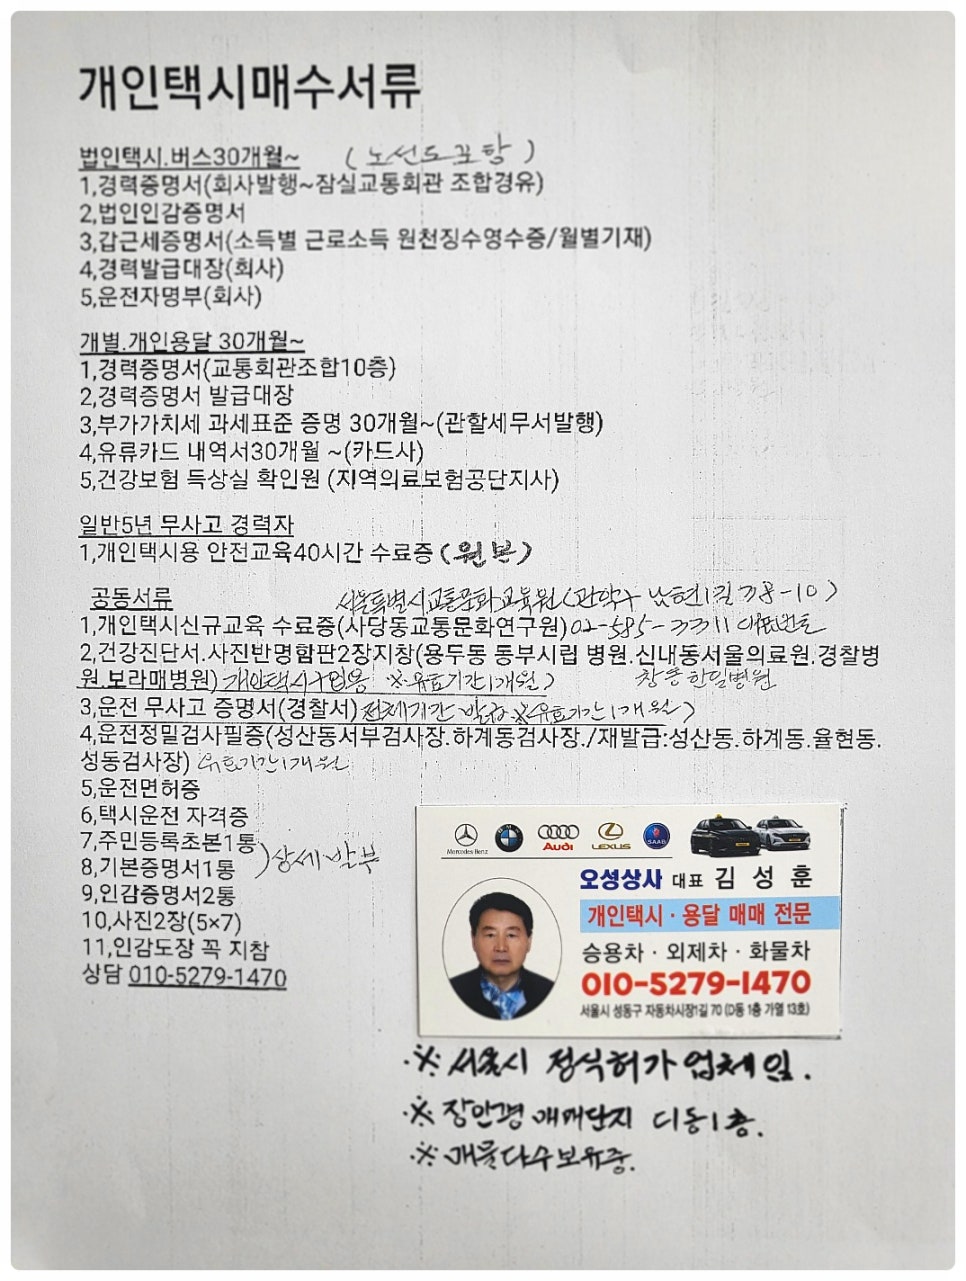 개인택시매수서류
법인택시.버스30개월~ (노선도포함)
1,경력증명서(회사발행~잠실교통회관 조합경유)
2,법인인감증명서
3,갑근세증명서(소득별 근로소득 원천징수영수증/월별기재)
4,경력발급대장(회사)
5,운전자명부(회사)
개별.개인용달 30개월~
1,경력증명서(교통회관조합10층)
2,경력증명서 발급대장
3,부가가치세 과세표준 증명 30개월~(관할세무서발행)
4,유류카드 내역서30개월 ~(카드사)
5,건강보험 득상실 확인원 (지역의료보험공단지사)
일반5년 무사고 경력자
1,개인택시용 안전교육40시간 수료증(원본)
공동서류 서울특별시교통문화교육원(관악구 남현1길 78-10)
1,개인택시신규교육 수료증(사당동교통문화연구원)02-585-3311 대표번호
2,건강진단서.사진반명함판2장지창(용두동 동부시립 병원.신내동서울의료원.경찰병
원.보라매병원) 개인택시구입용 ※유효기간1개월) 창동한일병원
3,운전 무사고 증명서(경찰서) 전체기간 ※유효기간1개월)
4,운전정밀검사필증(성산동서부검사장.하계동검사장./재발급:성산동.하계동.율현동.
성동검사장) 유효기간1개월
5,운전면허증
6,택시운전 자격증
7,주민등록초본1통
8,기본증명서1통 )상세발부
9,인감증명서2통
10,사진2장(5×7)
11,인감도장 꼭 지참
상담 010-5279-1470
Mercedes-Benz BMW Audi LEXUS SAAB
오성상사 대표 김성훈
개인택시·용달 매매 전문
승용차·외제차·화물차
010-5279-1470
서울시 성동구 자동차시장1길 70 (D동 1층 가열 13호)
※ 서울시 정식허가 업체임.
※ 장안평 매매단지 디동1층.
※ 매물다수보유중.